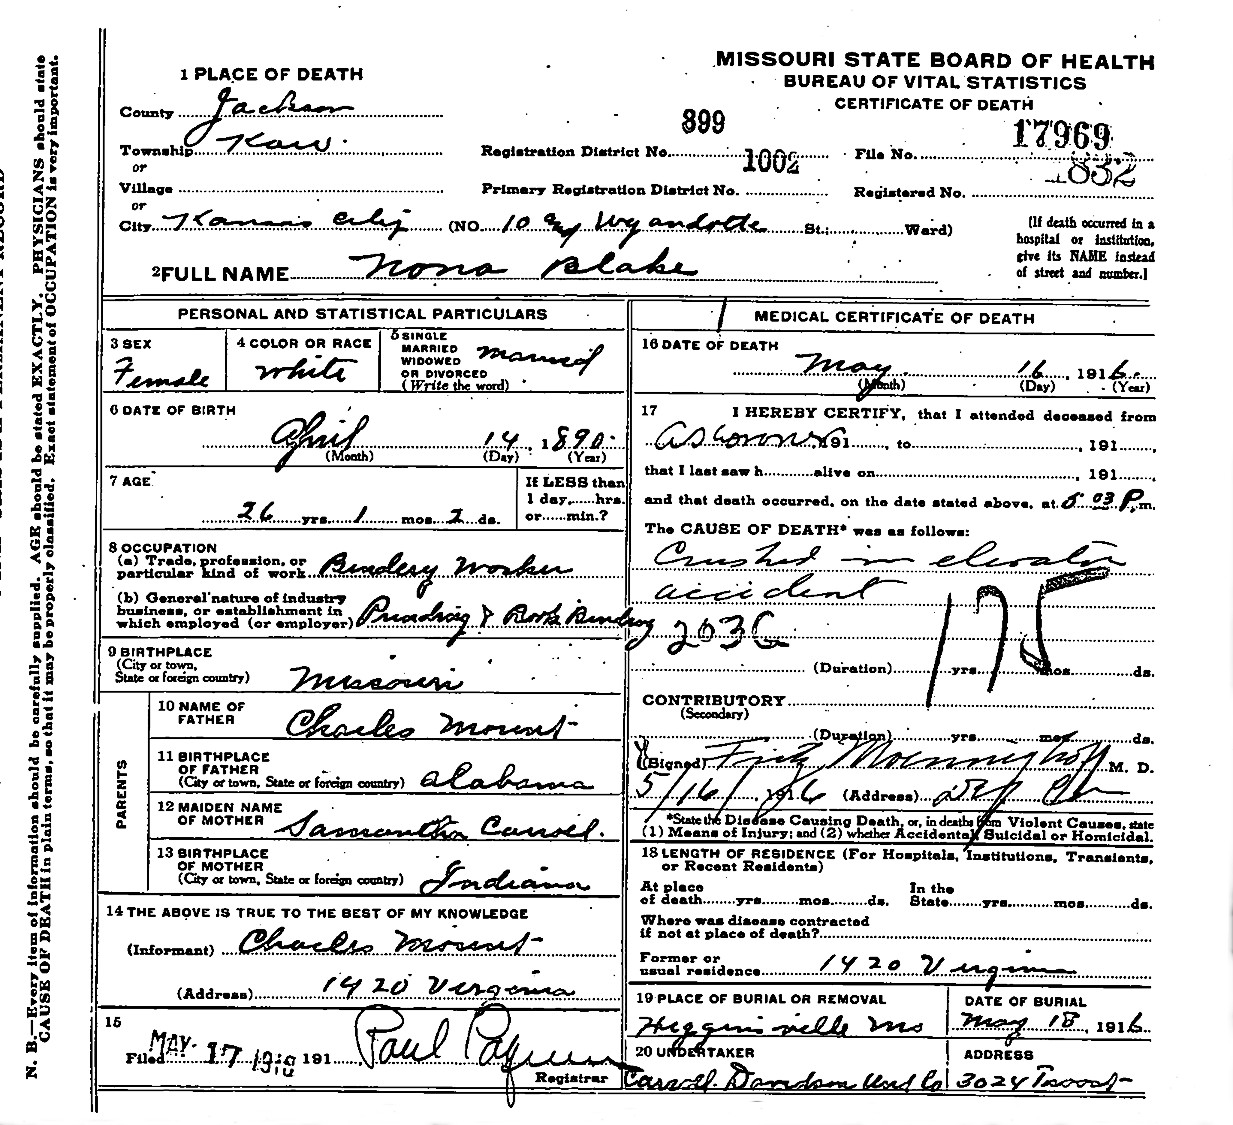 MISSOURI STATE BOARD OF HEALTH
BUREAU OF VITAL STATISTICS
CERTIFICATE OF DEATH
1 PLACE OF DEATH
County Jackson
Township Kaw
or
Village
or
City Kansas City (NO. 10 Wyandotte St.; Ward)
899
Registration District No. 1002
Primary Registration District No.
17969
File No.
832
Registered No.
(If death occurred in a
hospital or institution,
give its NAME instead
of street and number.)
2 FULL NAME Nona Blake
PERSONAL AND STATISTICAL PARTICULARS
3 SEX
Female
4 COLOR OR RACE
White
5 SINGLE
MARRIED
WIDOWED
OR DIVORCED
(Write the word)
married
6 DATE OF BIRTH
April 14, 1890
(Month) (Day) (Year)
7 AGE
26 yrs. 1 mos. 2 ds.
If LESS than
1 day,......hrs.
or......min.?
8 OCCUPATION
(a) Trade, profession, or
particular kind of work Bindery Worker
(b) General nature of industry
business, or establishment in
which employed (or employer) Printing & Book Binding
9 BIRTHPLACE
(City or town,
State or foreign country) Missouri
PARENTS
10 NAME OF
FATHER Charles Mount
11 BIRTHPLACE
OF FATHER
(City or town, State or foreign country) Alabama
12 MAIDEN NAME
OF MOTHER Samantha Carrol.
13 BIRTHPLACE
OF MOTHER
(City or town, State or foreign country) Indiana
14 THE ABOVE IS TRUE TO THE BEST OF MY KNOWLEDGE
(Informant) Charles Mount
(Address) 1420 Virginia
15
Filed MAY 17 1916 191 Paul
Registrar
MEDICAL CERTIFICATE OF DEATH
16 DATE OF DEATH
May 16, 1916
(Month) (Day) (Year)
17 I HEREBY CERTIFY, that I attended deceased from
as Coroner 191......, to......, 191......,
that I last saw h......alive on......, 191......,
and that death occurred, on the date stated above, at 5 03 P.m.
The CAUSE OF DEATH* was as follows:
Crushed in elevator
accident
203G
175
(Duration)......yrs......mos......ds.
CONTRIBUTORY
(Secondary)
(Duration)......yrs......mos......ds.
(Signed) Fritz Moennighoff M. D.
5/16/, 1916 (Address) Dep Cor
*State the Disease Causing Death, or, in deaths from Violent Causes, state
(1) Means of Injury; and (2) whether Accidental, Suicidal or Homicidal.
18 LENGTH OF RESIDENCE (For Hospitals, Institutions, Transients,
or Recent Residents)
At place
of death......yrs......mos......ds.
In the
State......yrs......mos......ds.
Where was disease contracted
if not at place of death?
Former or
usual residence 1420 Virginia
19 PLACE OF BURIAL OR REMOVAL
Higginsville Mo
DATE OF BURIAL
May 18, 1916
20 UNDERTAKER
Carroll Davidson Und Co
ADDRESS
3024 Troost
N. B.—Every item of information should be carefully supplied. AGE should be stated EXACTLY. PHYSICIANS should state
CAUSE OF DEATH in plain terms, so that it may be properly classified. Exact statement of OCCUPATION is very important.